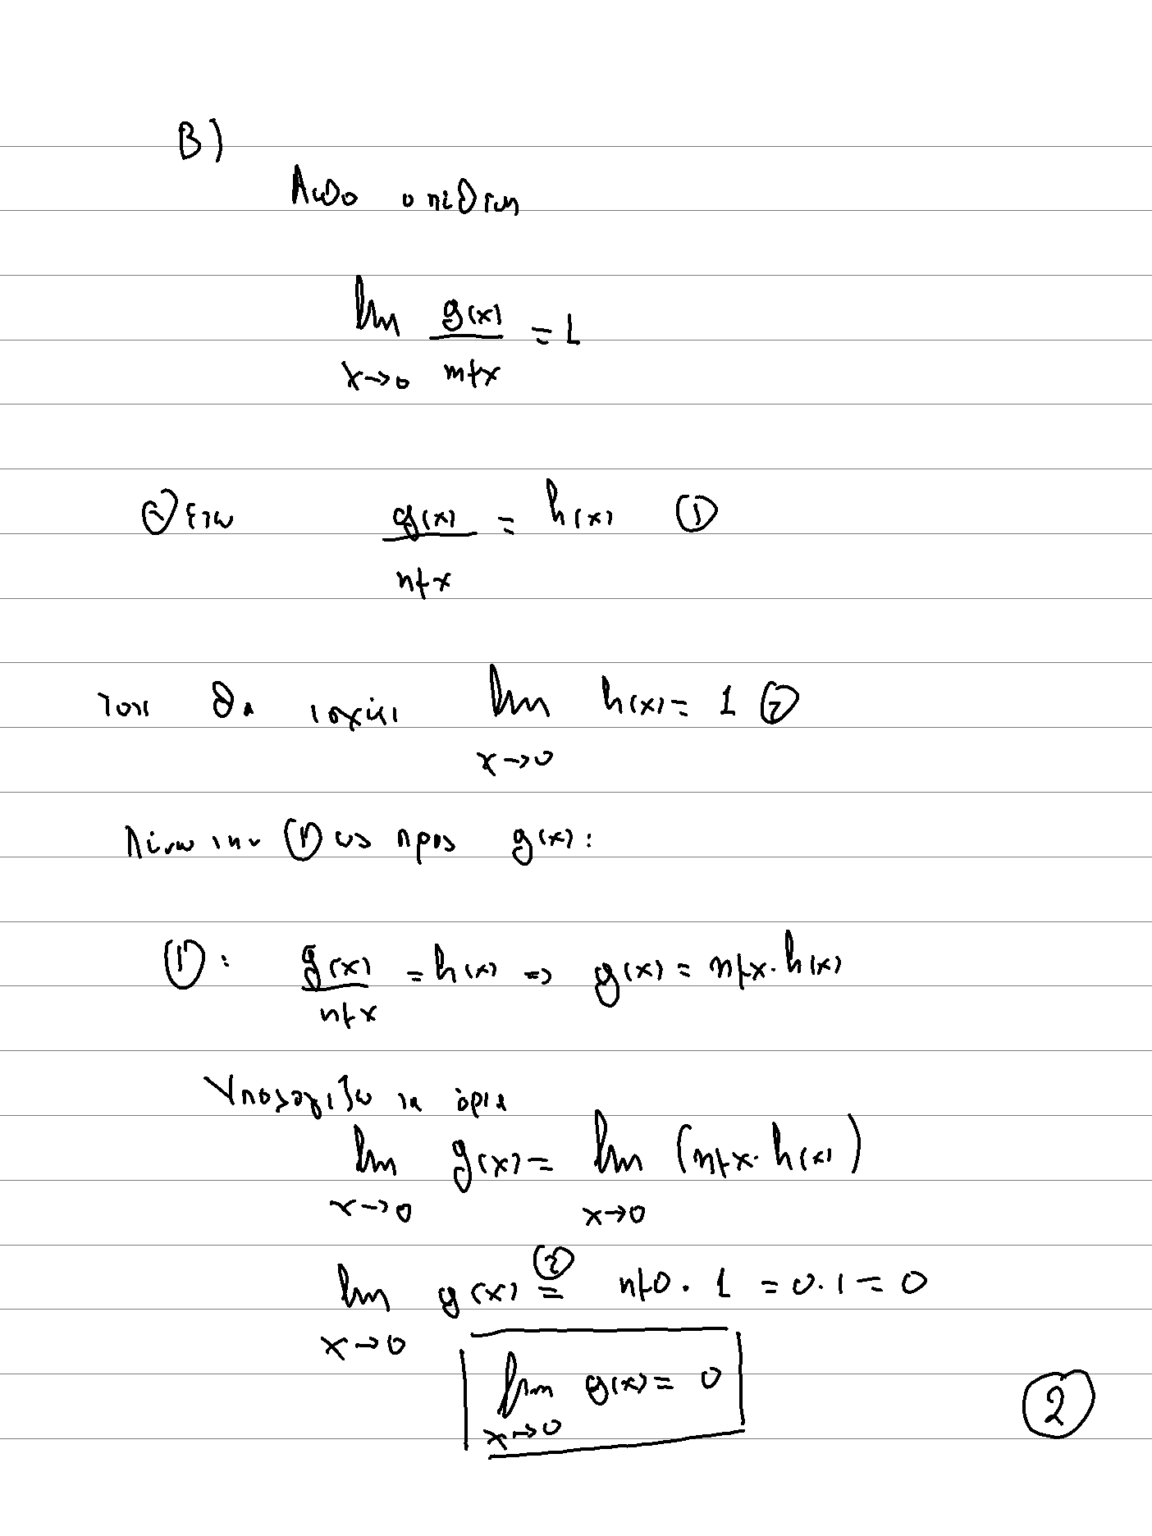 B)
Από υπόθεση
lim g(x)/ημx = 1
x→0
Θέτω g(x)/ημx = h(x) ①
τότε θα ισχύει lim h(x) = 1 ②
x→0
Λύνω την ① ως προς g(x):
①: g(x)/ημx = h(x) => g(x) = ημx·h(x)
Υπολογίζω τα όρια
lim g(x) = lim (ημx·h(x))
x→0 x→0
lim g(x) =② ημ0·1 = 0·1 = 0
x→0
lim g(x) = 0
x→0
②